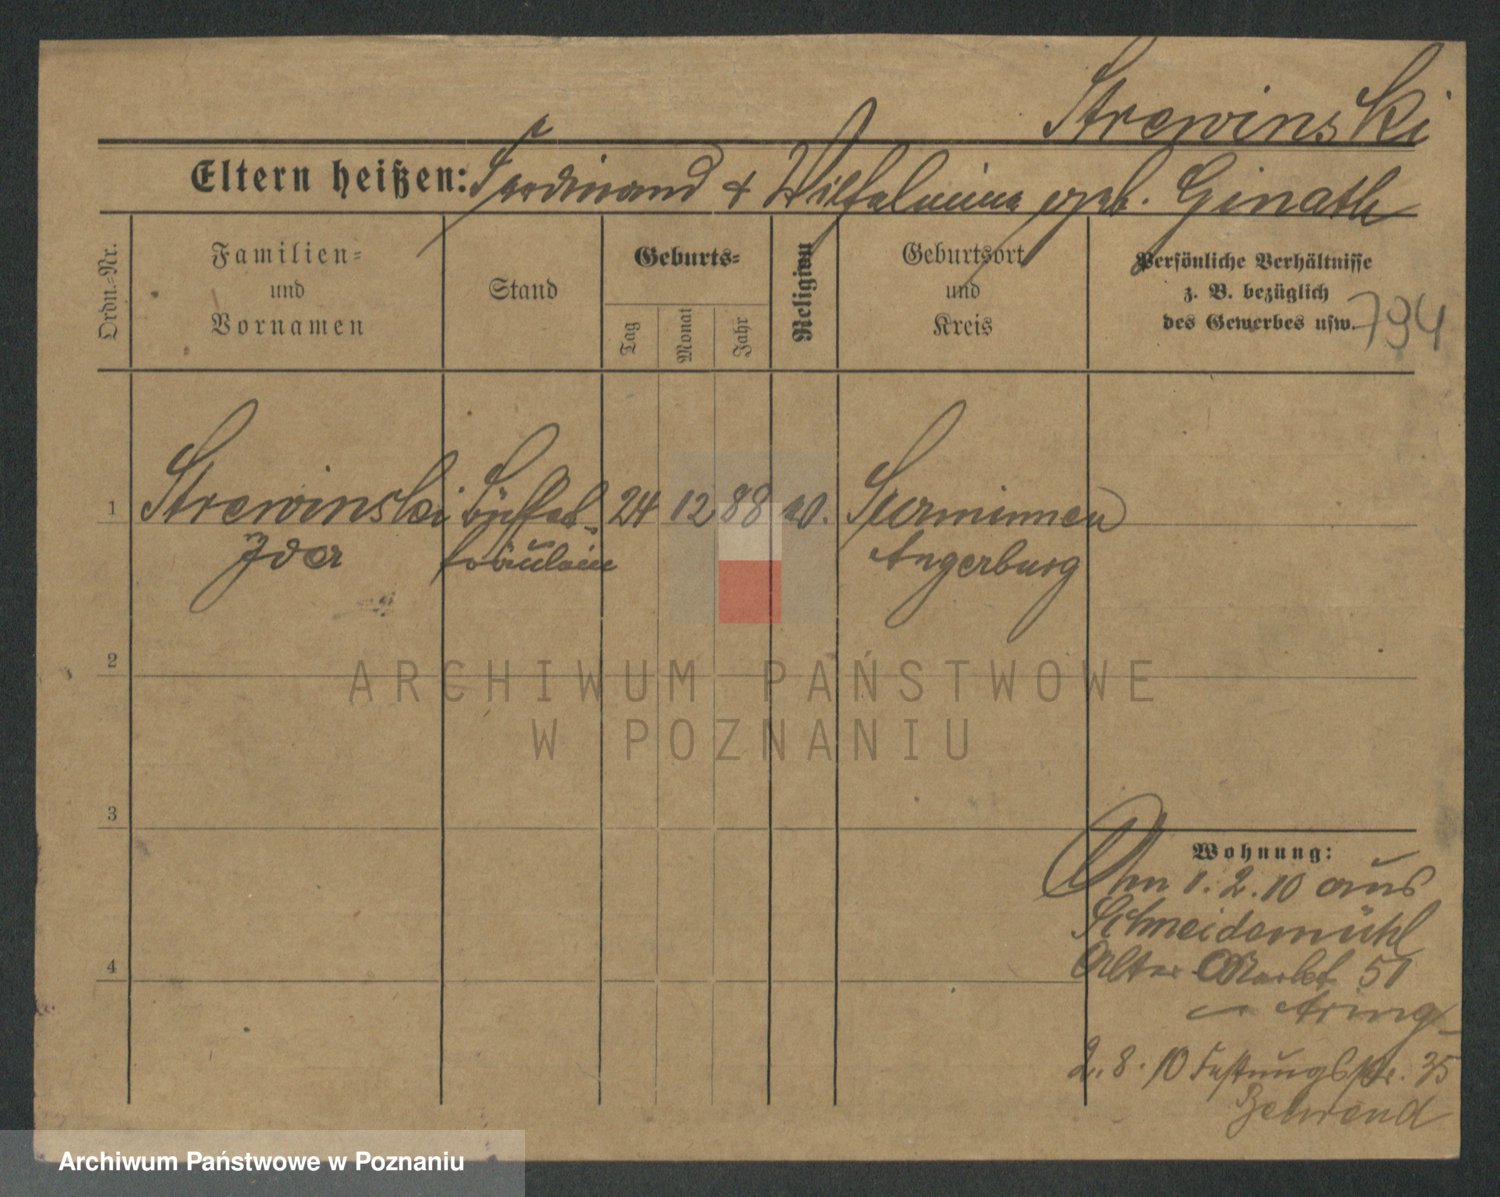 Strewinski
Eltern heißen: Ferdinand & Wilhelmine geb. Ginath
Ordn.-Nr.
Familien-
und
Vornamen
Stand
Geburts-
Tag
Monat
Jahr
Religion
Geburtsort
und
Kreis
Persönliche Verhältnisse
z. B. bezüglich
des Gewerbes usw.
794
1 Strewinski Büffet- 24 12 88 Sperminnen
Ida fräulein Angerburg
2
3
4
Wohnung:
Am 1.2.10 aus
Schneidemühl
Alter Markt 51
2.8.10 Festungsstr. 35
Behrend
ARCHIWUM PAŃSTWOWE
W POZNANIU
Archiwum Państwowe w Poznaniu